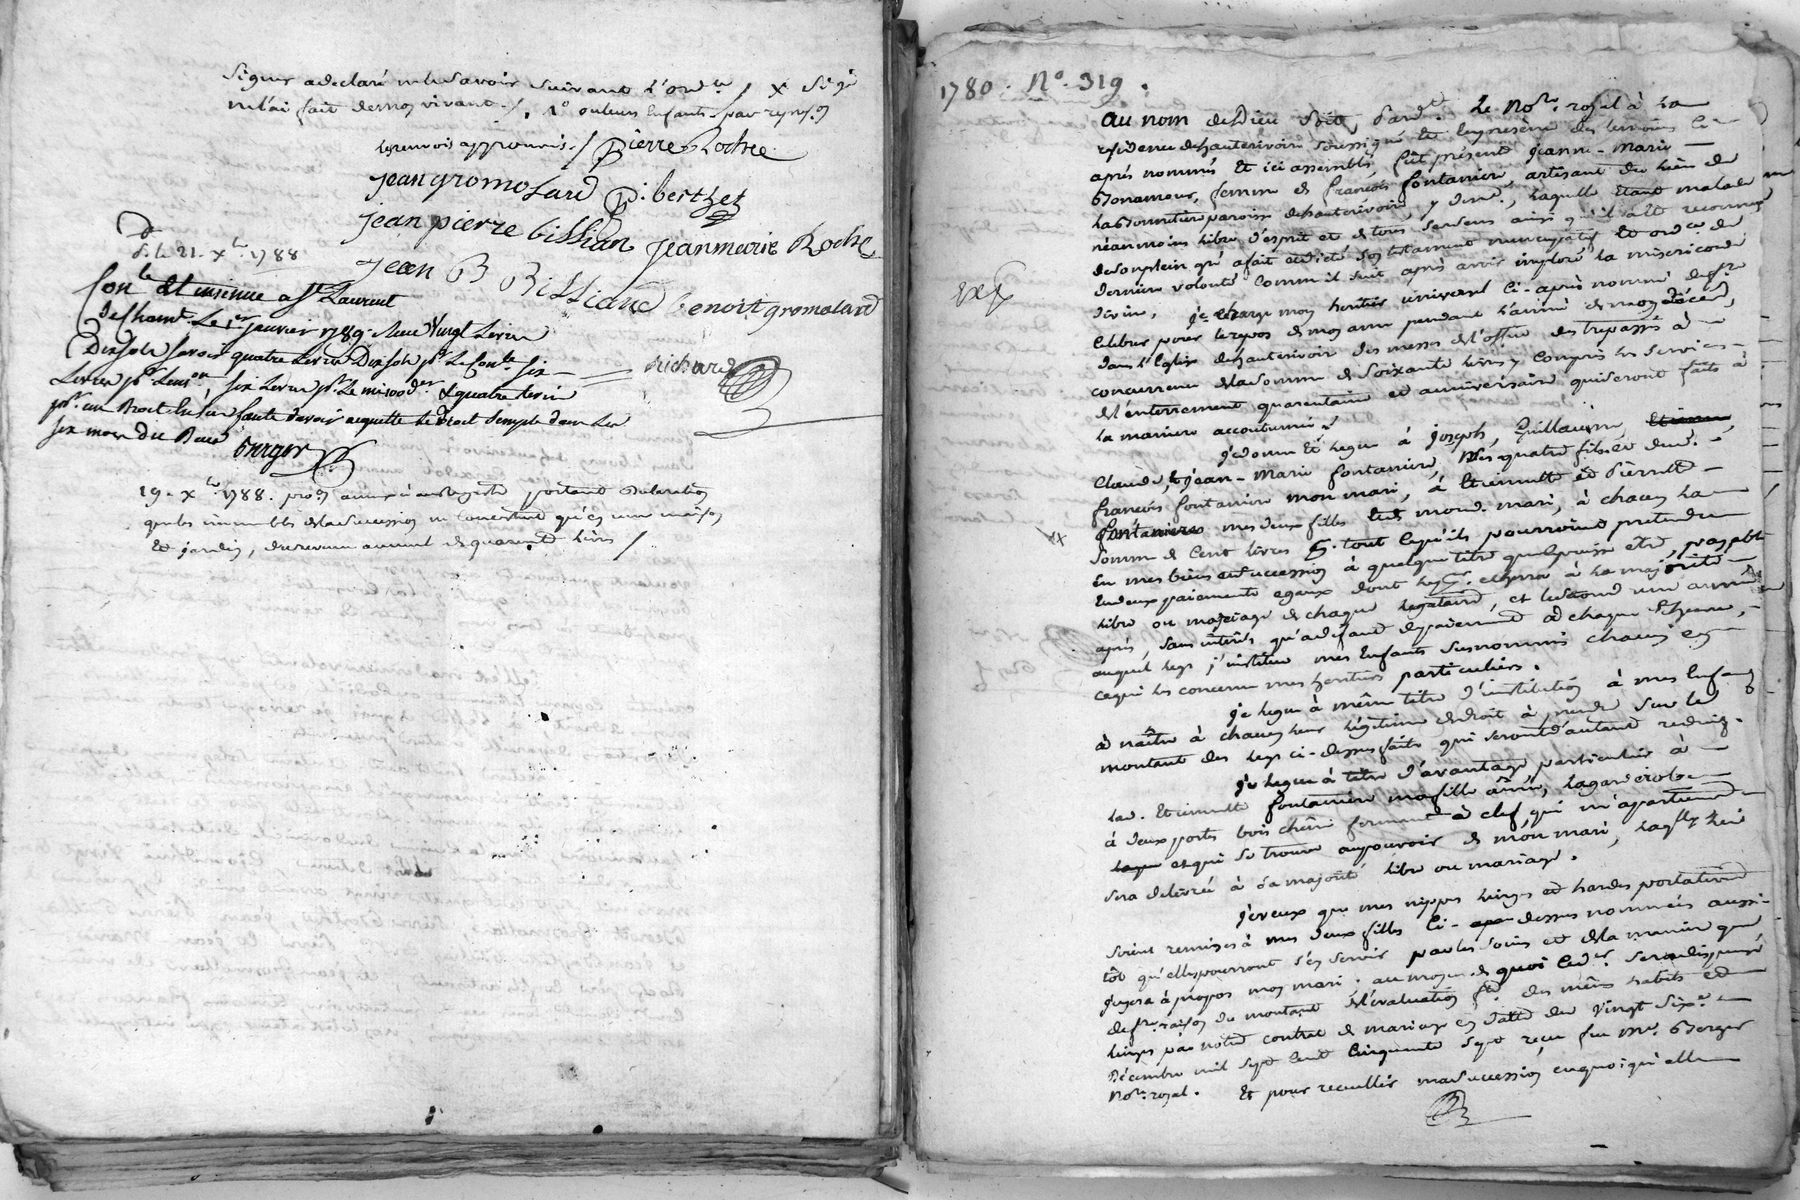 signer a declaré ne le savoir suivant l'ord.ce / X signé
ne l'ai fait de mon vivant ./. 1° ou leurs enfants par repres.on
les renvois approuvés ./ pierre Rochee
jean gromolard p. berthet
jean pierre billian jean marie Roche
jean B Billiand benoit gromolard
richard
d.
S. le 21. X.bre 1788
Con.lé et insinué a St Laurent
de Cham.t Le 1.er janvier 1789. Reçu Vingt Livres
Dix sols savoir quatre Livres Dix sols p.r Le Con.lle six
Livres p.r L'ins.on, six Livres p.r Le mi 100 d.er & quatre Livres
p.r un Droit En sus faute d'avoir acquitté Le Droit Simple dans Les
six mois du Decès
Berger
19. X.bre 1788. pro.on
que les immeubles de la succession ne consistent qu'en une maison
Et jardin, du revenu annuel de quarante livres /
1780. N°. 319.
Au nom de Dieu soit, Pard.t Le No.re royal à la
residence de hauterivoire soussigné Et En presence des temoins ci-
après nommés Et ici assemblés, fût présente jeanne-Marie
Bonamour, femme de françois fontanière, artisant du lieu de
la Bonnetière paroisse de hauterivoire y dem.t, laquelle étant malade
néanmoins libre d'esprit et de tous ses sens ainsi qu'il a été reconnu
de son plein gré a fait et dicté son testament nuncupatif Et ord.ce de
dernière volonté Comme il suit après avoir imploré la misericorde
divine, je charge mon heritier universel ci-après nommé de f.re
celebrer pour le repos de mon ame pendant l'année de mon décès,
dans l'Eglise de hauterivoire des messes de l'office des trepassés à
concurrence de la somme de soixante livres, compris les services
d'enterrement quarantaine et anniversaire qui seront faits à
la maniere accoutumée.
je donne Et legue à joseph, Guillaume,
Claude, & jean-Marie fontanière, mes quatre fils et dud.
françois fontanière mon mari, à Etiennette et Pierrette
fontanières mes deux filles Et de mond. mari, à chacun la
somme de Cent livres p.r tout ce qu'ils pourroient pretendre
En mes biens et succession à quelque titre que ce puisse etre, payable
En deux paiements egaux dont le p.er echerra à la majorité
libre ou mariage de chaque legataire, et le second une année
après, sans interêts qu'à defaut de paiement de chaque Echeance,
auquel legs j'institue mes Enfants susnommés chacun en
ce qui les concerne mes heritiers particuliers.
je legue à même titre d'institution à mes Enfans
à naître à chacun leur legitime de droit à prendre sur le
montant des legs ci-dessus faits qui seront d'autant reduits.
je legue à titre d'avantage particulier à
lad. Etiennette fontanière ma fille aînée, la garderobe
à deux portes bois chêne fermant à clef, qui m'appartient
et qui se trouve au pouvoir de mon mari, laq.lle lui
sera delivrée à sa majorité libre ou mariage.
je veux que mes nippes linges et hardes portatives
soient remises à mes deux filles ci-dessus nommées aussi-
tôt qu'elles pourront s'en servir par les soins et de la maniere que
jugera à propos mon mari; au moyen de quoi led.r sera dispensé
de f.re raison du montant de l'évaluation f.te des mêmes habits et
linges par notre contrat de mariage en datte du vingt six.e
Décembre mil sept Cent Cinquante sept reçu feu M.e Berger
No.re royal. Et pour recueillir ma succession en quoi qu'elle